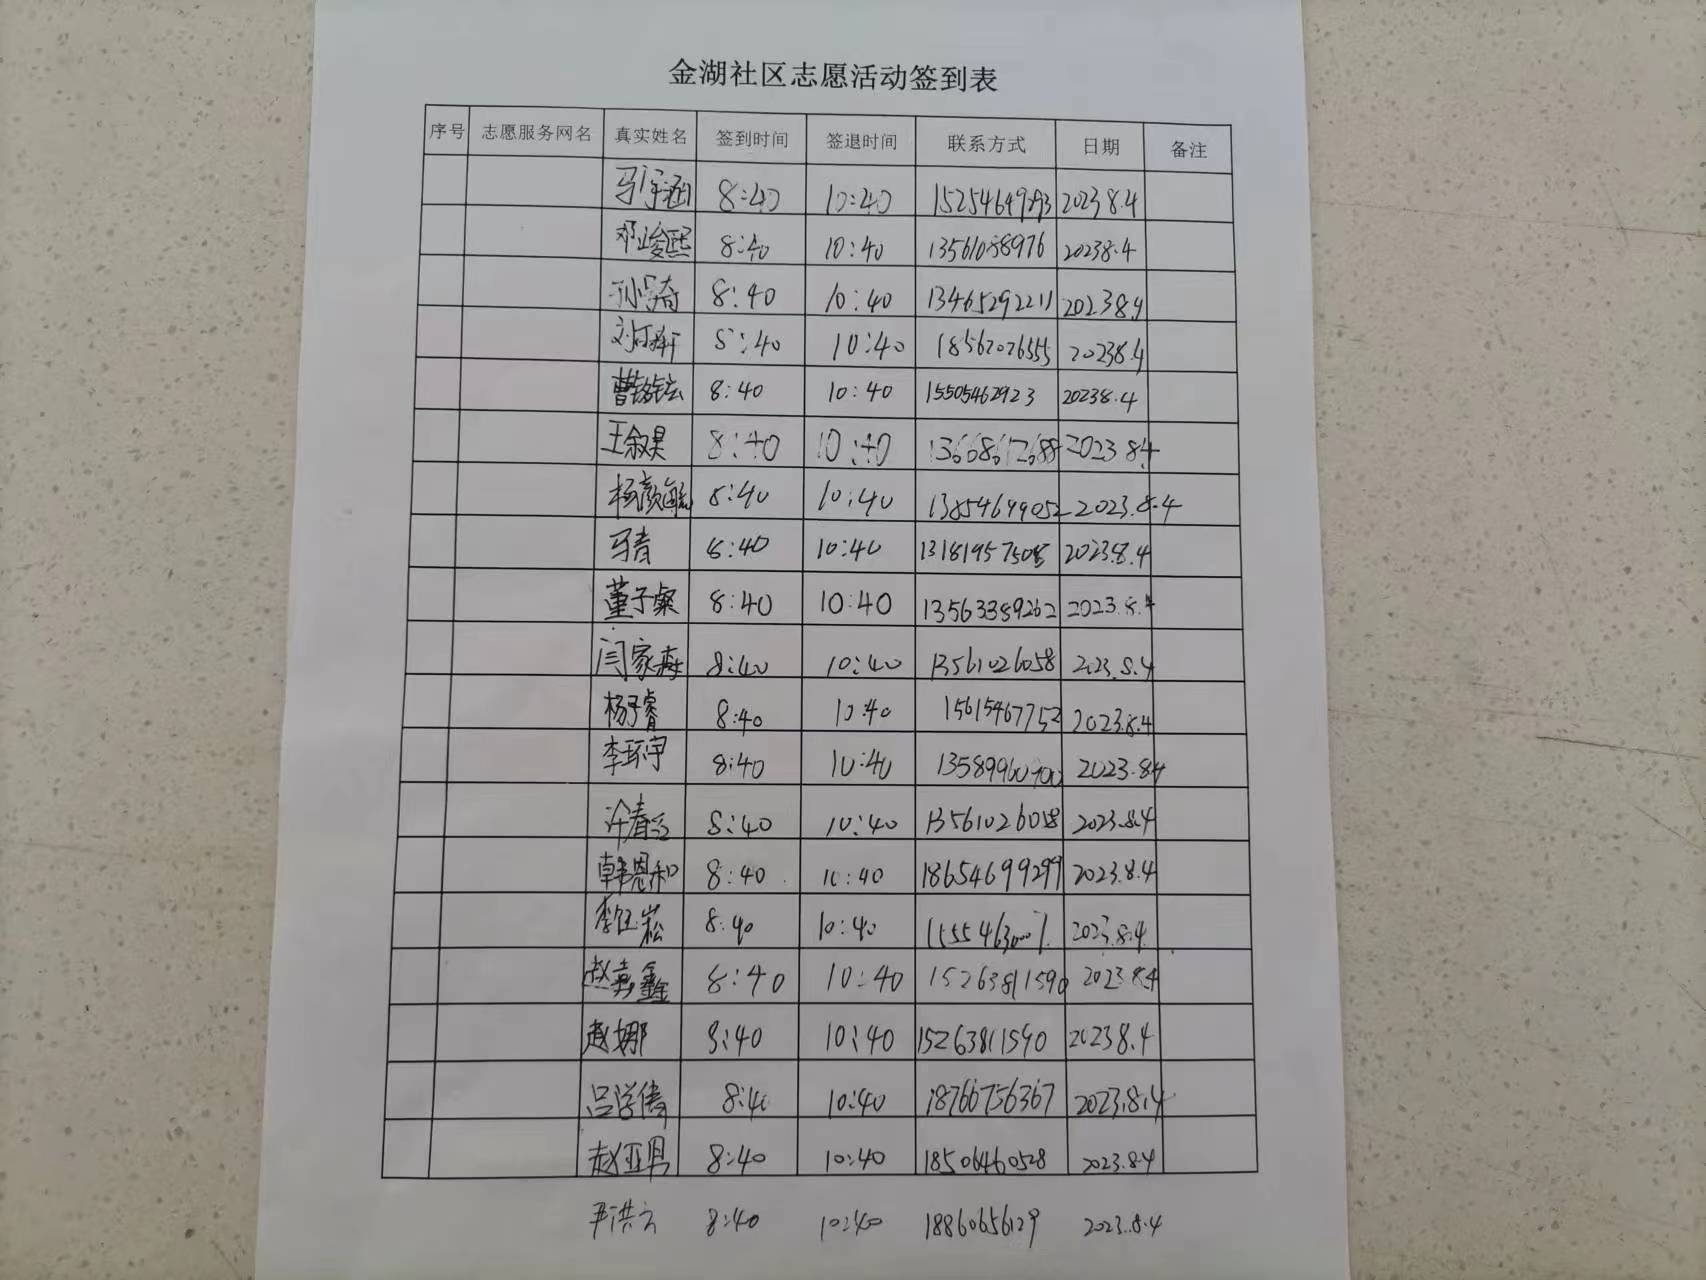 金湖社区志愿活动签到表
序号 志愿服务网名 真实姓名 签到时间 签退时间 联系方式 日期 备注
马宇涵 8:40 10:40 2023 8.4
邓峻熙 8:40 10:40 13561088976 20238.4
孙学奇 8:40 10:40 13465292211 20238.4
8:40 10:40 18562026555 20238.4
曹铭铉 8:40 10:40 15505462923 20238.4
王叙昊 8:40 10:40 13668612688 2023 84
杨颜毓 8:40 10:40 13854649052 2023.8.4
马青 8:40 10:40 13181957508 2023.8.4
董子粲 8:40 10:40 13563389262 2023.8.4
闫家 8:40 10:40 13561026058 2023.8.4
杨子睿 8:40 10:40 15615467752 2023.8.4
李环宇 8:40 10:40 2023.84
许春 8:40 10:40 13561026058 2023.8.4
韩恩和 8:40 10:40 18654699299 2023.8.4
李钰崧 8:40 10:40 2023.8.4
赵嘉鑫 8:40 10:40 15263811590 2023 8.4
赵娜 8:40 10:40 15263811590 2023 8.4
吕学倩 8:40 10:40 18766756367 2023.8.4
赵亚男 8:40 10:40 18506460528 2023.8.4
尹洪云 8:40 10:40 18860656129 2023.8.4